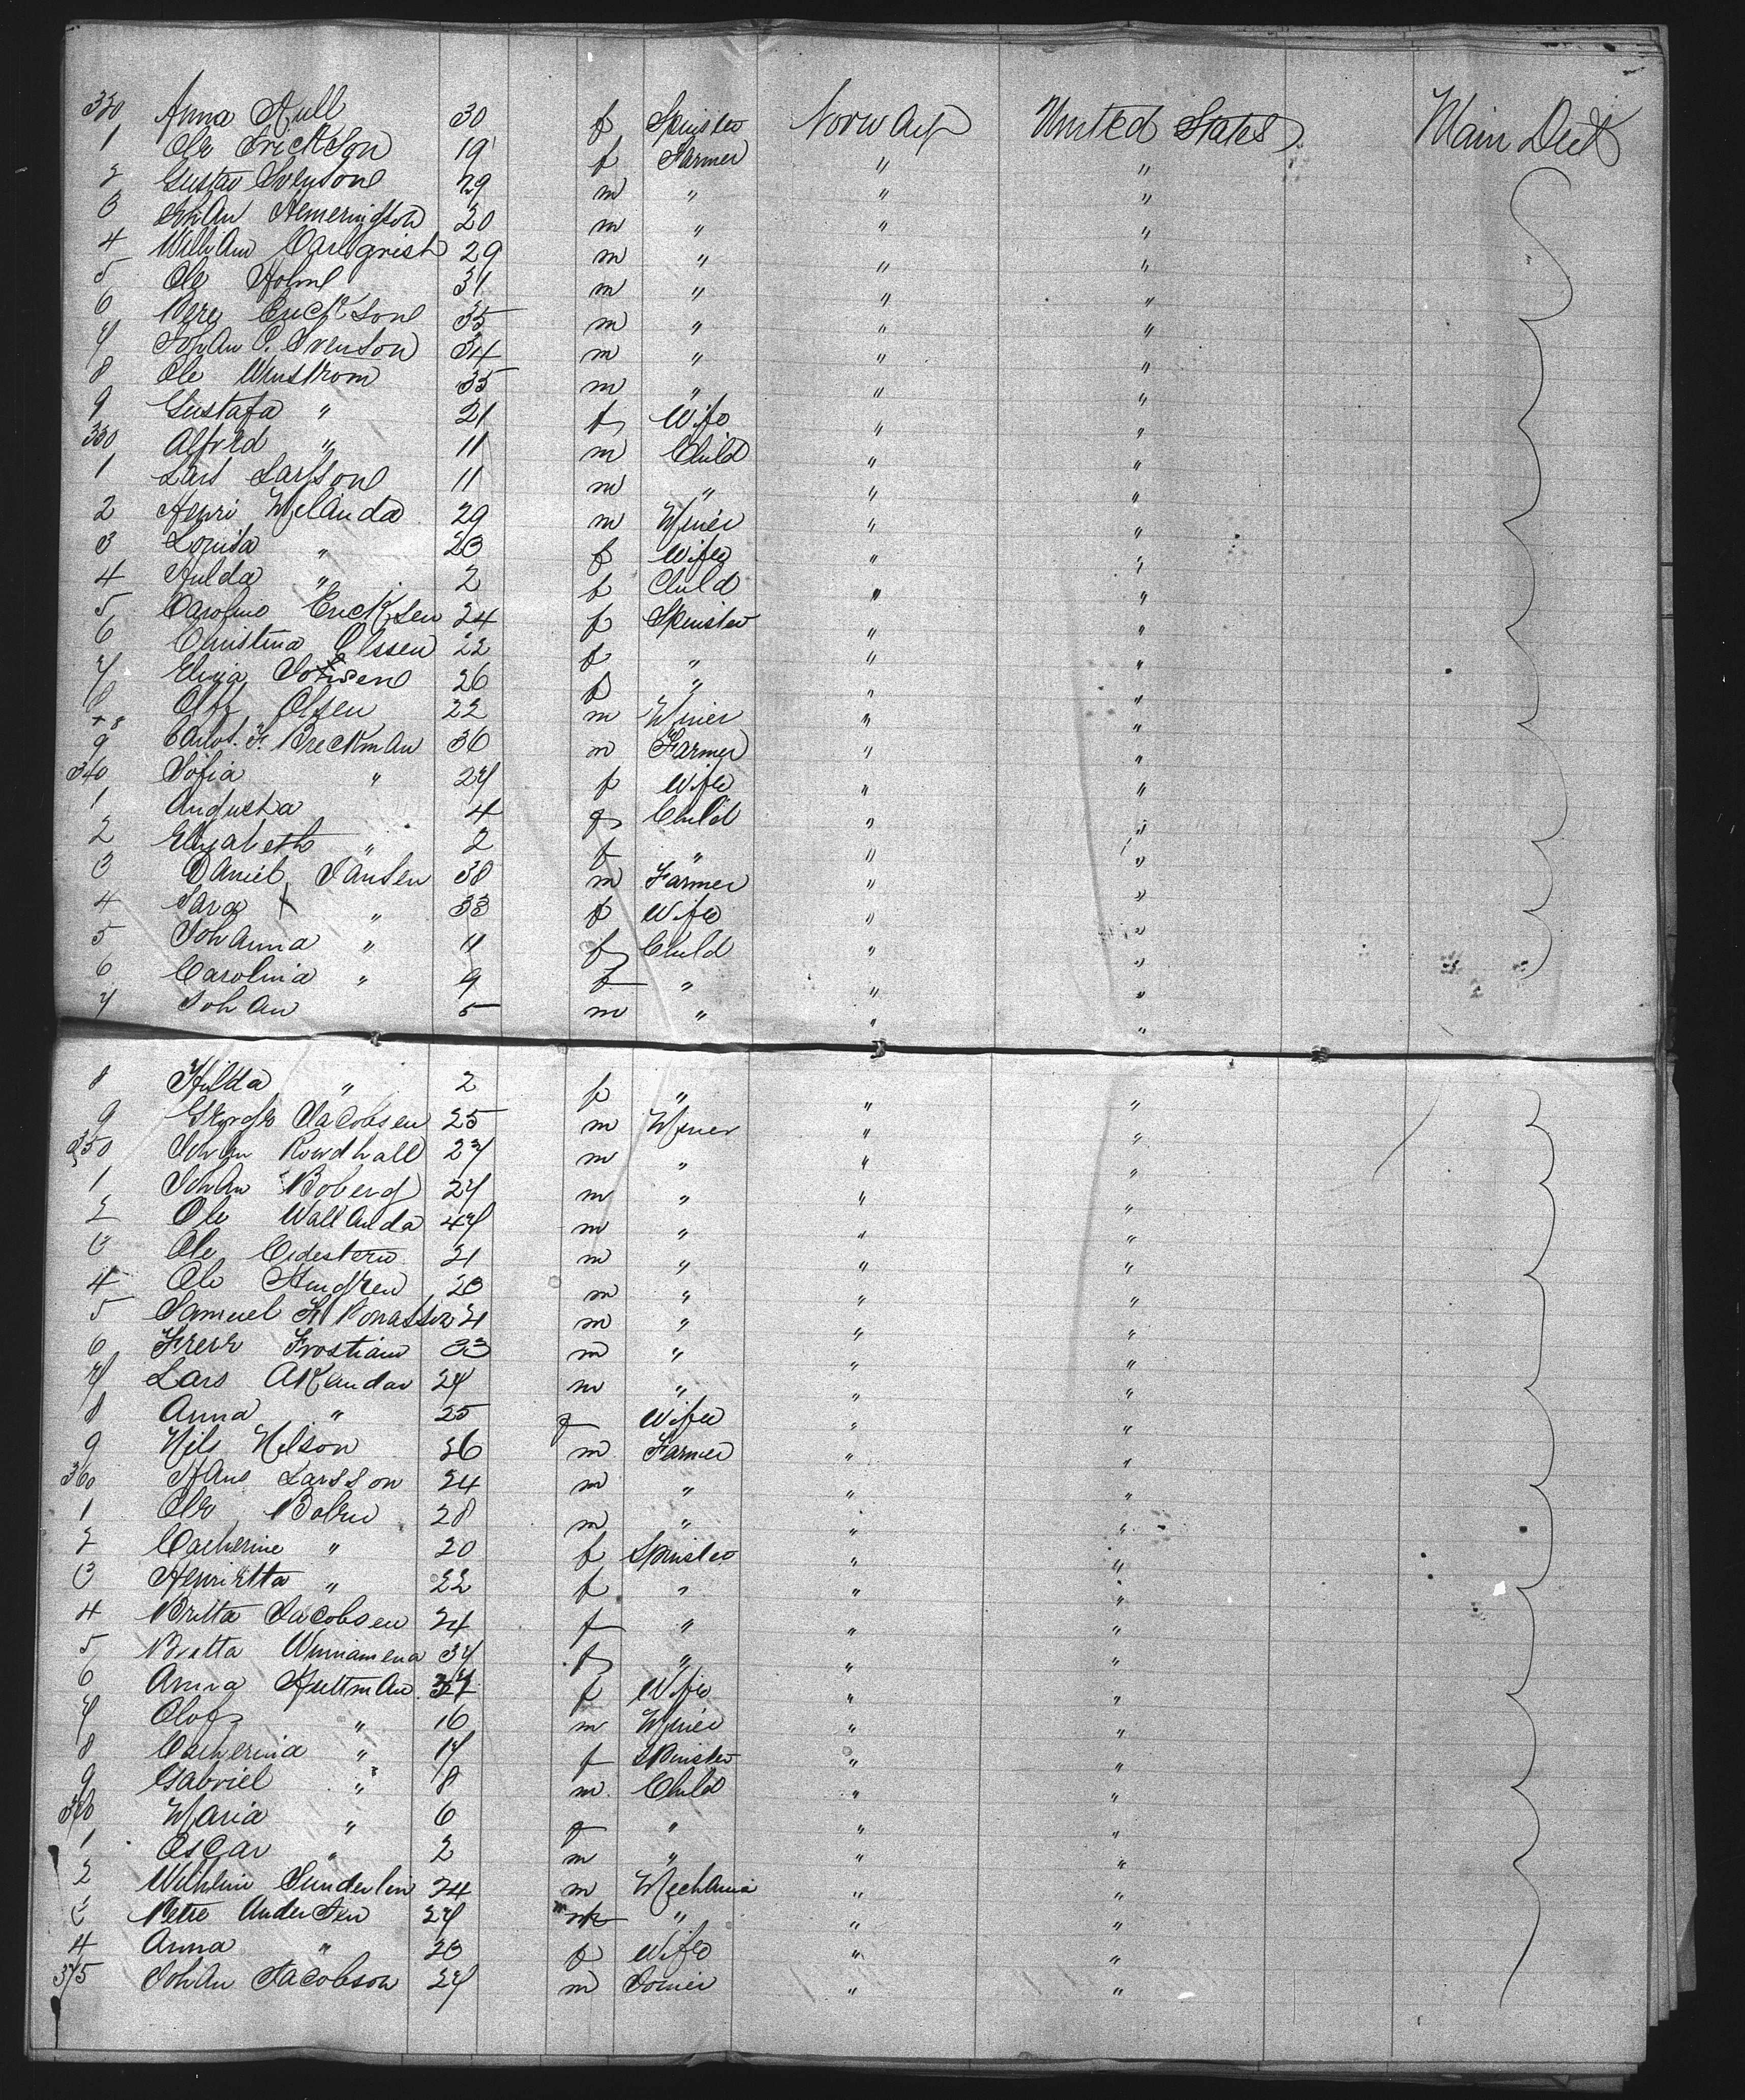 320 Anna Hull 30 f Spinster Norway United States Main Deck
1 Ole Erickson 19 f Farmer " "
2 Gustav Svensone 29 m " " "
3 Johan Hemeringson 20 m " " "
4 William Carlqrist 29 m " " "
5 Ole Holme 31 m " " "
6 Pere Ericksone 35 m " " "
7 Johan P. Svenson 34 m " " "
8 Ole Winstrom 35 m " " "
9 Gustafa " 21 f Wife " "
330 Alfred " 11 m Child " "
1 Lars Larssone 11 m " " "
2 Henri Melanda 29 m Miner " "
3 Louisa " 23 f Wife " "
4 Hulda " 2 f Child " "
5 Caroline Ericksen 24 f Spinster " "
6 Christina Olssen 22 f " " "
7 Eliza 26 f " " "
8 Olsen 22 m Miner " "
9 F. Breckman 36 m Farmer " "
340 Sofia " 27 f Wife " "
1 Augusta 4 f Child " "
2 Elizabeth " 2 f " " "
3 Daniel Jansen 38 m Farmer " "
4 Sara " 33 f Wife " "
5 Johanna " 11 f Child " "
6 Carolina " 9 f " " "
7 Johan 5 m " " "
8 Hilda " 2 f " " "
9 George Jacobsen 25 m Miner " "
350 Johan Rowdhall 27 m " " "
1 Johan Boberg 27 m " " "
2 Ole Wallanda 47 m " " "
3 Ole Cedestern 21 m " " "
4 Ole 23 m " " "
5 Samuel H 21 m " " "
6 Frostiam 33 m " " "
7 Lars Akandar 27 m " " "
8 Anna " 25 f Wife " "
9 Nils Nilson 36 m Farmer " "
360 Hans Larsson 24 m " " "
1 Ole Bolen 28 m " " "
2 Catherine " 20 f Spinster " "
3 Henrietta " 22 f " " "
4 Britta Jacobsen 24 f " " "
5 Britta 37 f " " "
6 Anna Hultman 37 f Wife " "
7 Olof " 16 m Miner " "
8 Catherina " 17 f Spinster " "
9 Gabriel " 8 m Child " "
370 Maria " 6 f " " "
1 Oscar " 2 m " " "
2 Wilhelm Sunderlin 24 m Mechanic " "
3 Petre Andersen 27 m " " "
4 Anna " 23 f Wife " "
375 Johan Jacobson 27 m Joiner " "